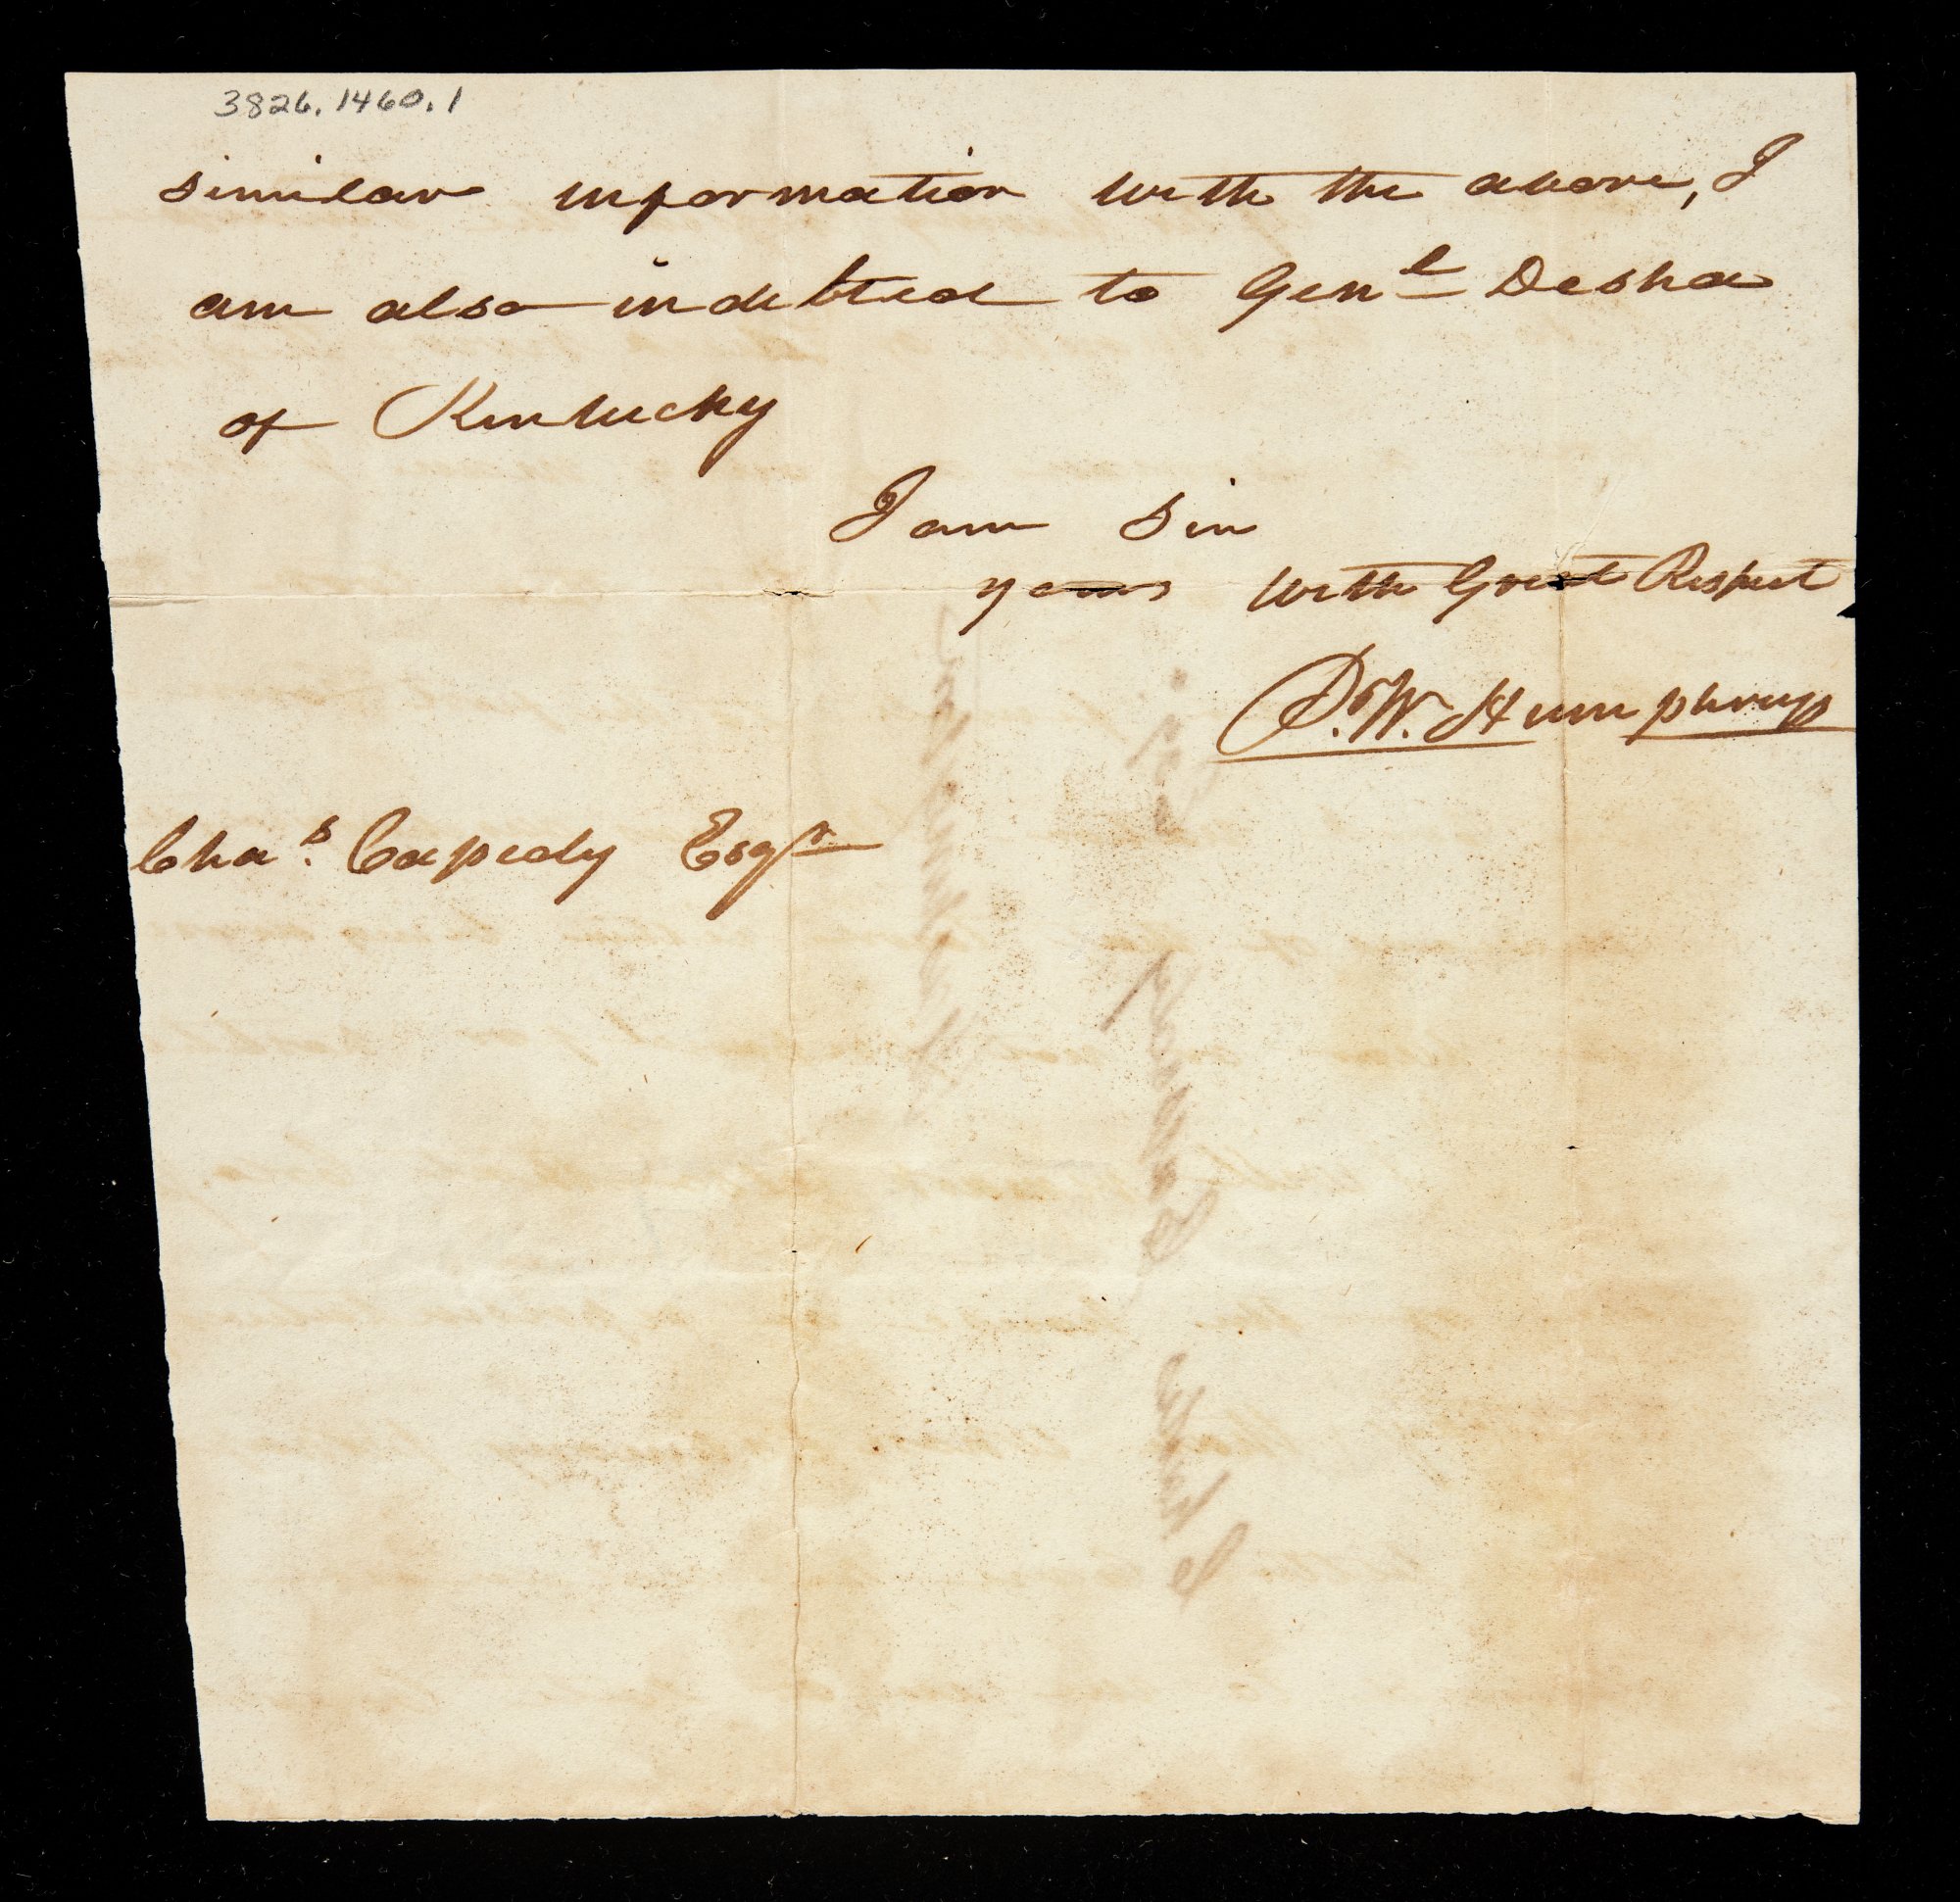 3826.1460.1
similar information with the above, I
am also indebted to Genl Desha
of Kentucky
I am Sir
yours with Great Respect
D. W. Humphreys
Chas. Cassedy Esqr